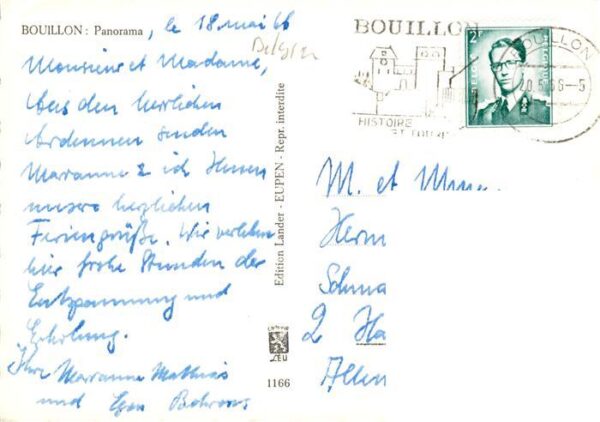 BOUILLON: Panorama, le 18 mai 66
Belgien
Monsieur et Madame,
Aus den herrlichen
Ardennen senden
Marianne & ich Ihnen
unsere herzlichen
Feriengrüße. Wir verleben
hier frohe Stunden der
Entspannung und
Erholung.
Ihre Marianne Mathias
und Egon
Edition Lander - EUPEN - Repr. interdite
1166
BOUILLON
HISTOIRE
ET TOURISME
2F
BOUILLON
20.5.66-5
M. et Mme.
Herrn
2 Ha
Allem